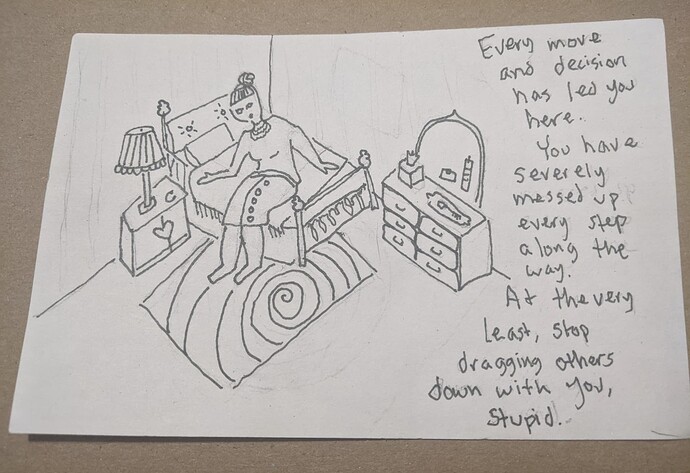 Every move
and decision
has led you
here.
You have
severely
messed up
every step
along the
way.
At the very
Least, stop
dragging others
down with you,
Stupid.